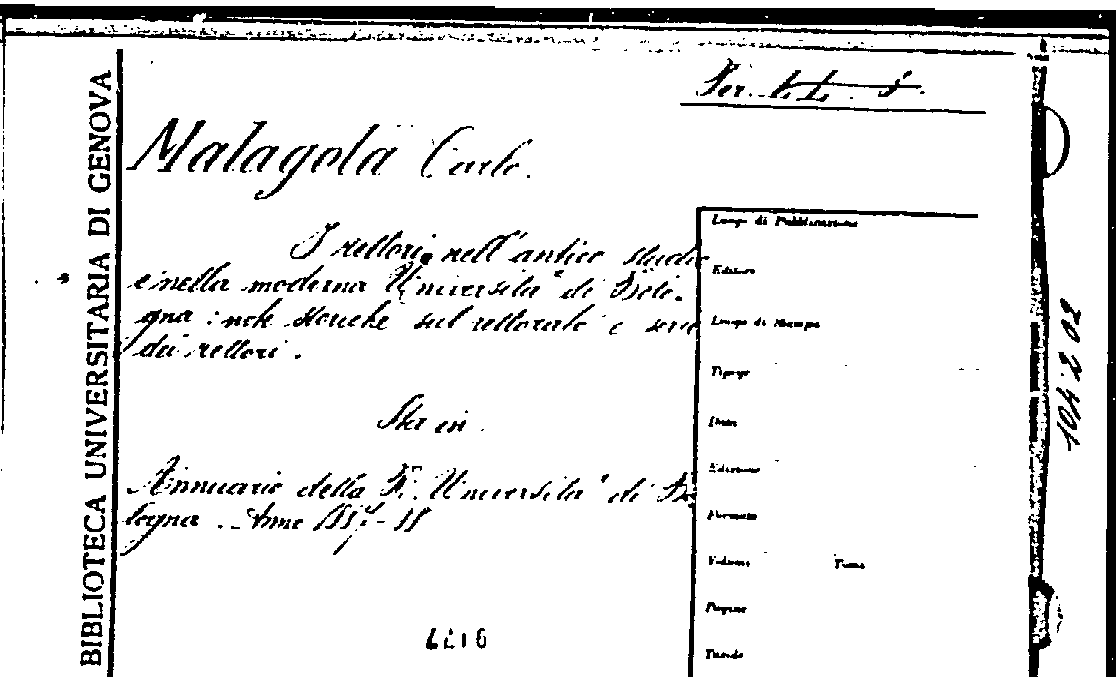 BIBLIOTECA UNIVERSITARIA DI GENOVA
Per.
Malagola Carlo.
I rettori nell'antico studio
e nella moderna Università di Bolo-
gna: note storiche sul rettorato e serie
dei rettori.
Sta in
Annuario della R. Università di Bo
logna. Anno 1887-88
Luogo di Pubblicazione
Editore
Luogo di Stampa
Tipogr
Data
Edizione
Formato
Volume Tomo
Pagine
Tavole
104202